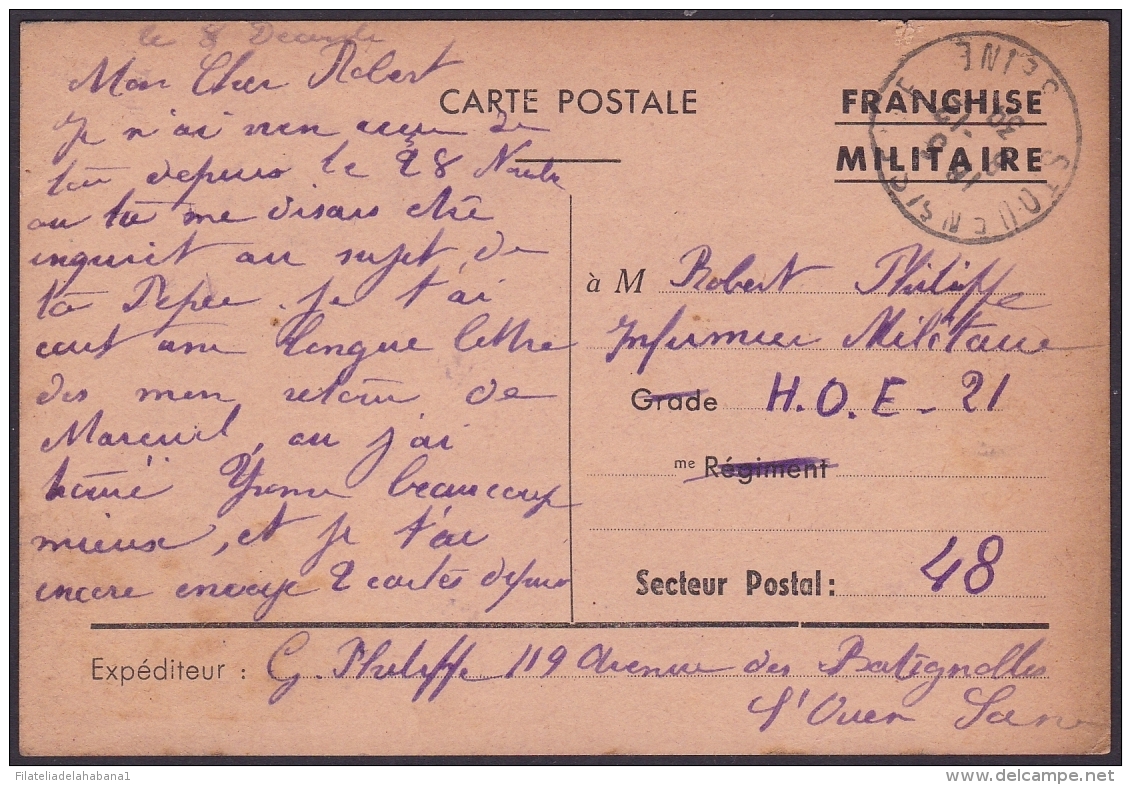 le 8 Decembre
Mon Cher Robert
Je n'ai rien recu de
toi depuis le 28 Novbr
ou tu me disais être
inquiet au sujet de
ta Pepee. je t'ai
ecrit une longue lettre
des mon retour de
Mareuil, ou j'ai
trouvé Yvonne beaucoup
mieux, et je t'ai
encore envoye 2 cartes depuis
CARTE POSTALE
FRANCHISE
MILITAIRE
à M Robert Philippe
Infirmier Militaire
Grade H.O.E-21
me Régiment
Secteur Postal: 48
Expéditeur : G. Philippe 119 Avenue des Batignolles
St Ouen Seine
ST OUEN SEINE
18
Filateliadelahabana1
delcampe.net